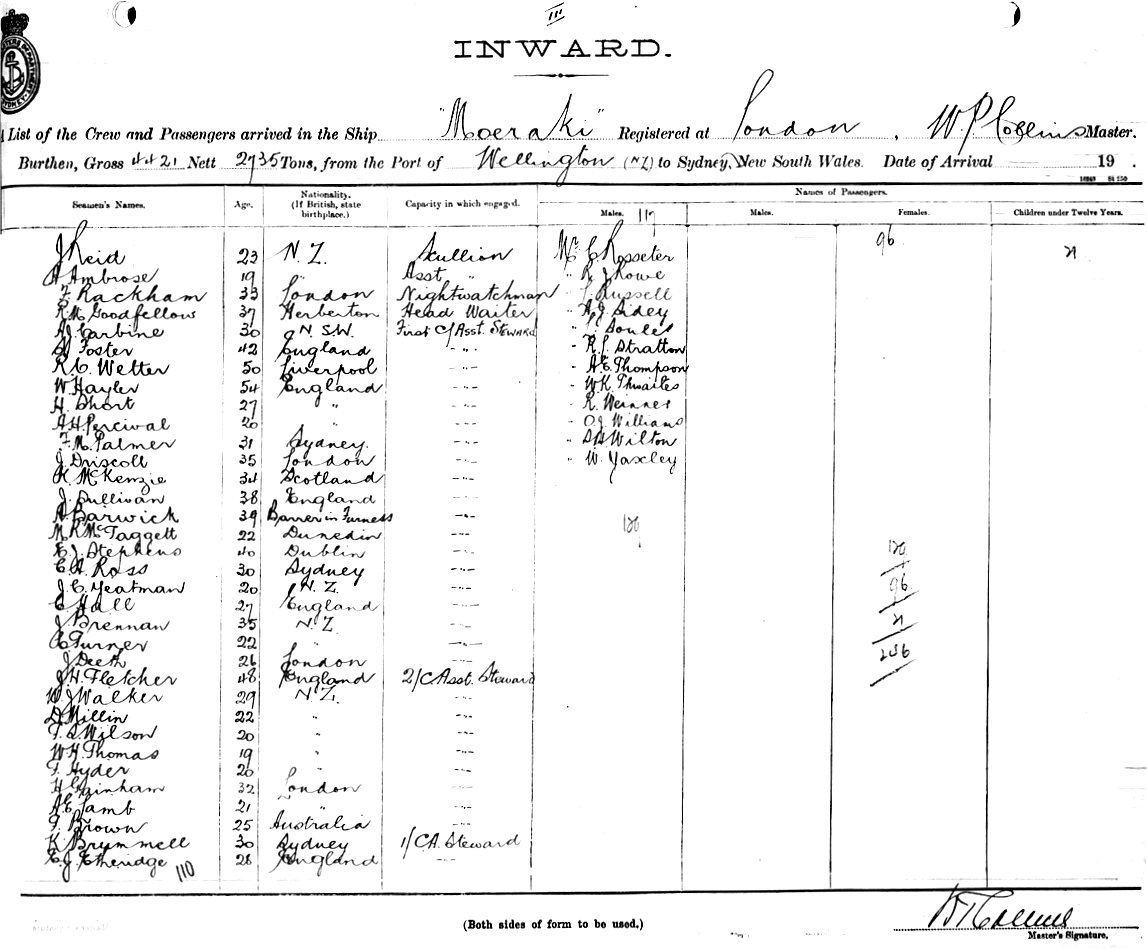 III
INWARD.
List of the Crew and Passengers arrived in the Ship "Moeraki" Registered at London, W. P. Collins Master.
Burthen, Gross 4421 Nett 2735 Tons, from the Port of Wellington (NZ) to Sydney, New South Wales. Date of Arrival 19 .
Seamen's Names. Age. Nationality. (If British, state birthplace.) Capacity in which engaged. Names of Passengers.
Males. 117 Males. Females. Children under Twelve Years.
96 21
J Reid 23 N.Z. Scullion Mr C Rosseter
A Ambrose 19 " Asst " " R J Rowe
F Rackham 33 London Nightwatchman " Russell
R.M. Goodfellow 37 Herberton Head Waiter " A.J. Sidey
A J Carbine 30 N.S.W. First C/Asst. Steward " Soules
Foster 42 England -"- " R.S. Stratton
R.C. Wetter 50 Liverpool -"- " A E Thompson
W Hayler 54 England -"- " W.K. Thwaites
H. Short 27 " -"- " R. Weinner
A H Percival 20 " -"- " O.J. Williams
F. M. Palmer 31 Sydney. -"- " Wilton
J. Driscoll 35 London -"- " W. Yaxley
K McKenzie 34 Scotland -"-
J. Sullivan 38 England -"-
A. Barwick 39 Barrer in Furness -"-
M R McTaggett 22 Dunedin -"- 120
E. J. Stephens 40 Dublin -"- 120
C A. Ross 30 Sydney -"-
J. C. Yeatman 20 N.Z. -"- 96
C Hall 27 England -"-
J Brennan 35 N.Z -"- 21
C Turner 22 " -"-
J Deeth 26 London -"- 236
J.H. Fletcher 48 England 2/C Asst. Steward
W J Walker 29 N.Z. -"-
D Millin 22 " -"-
Wilson 20 " -"-
W H Thomas 19 " -"-
F. Hyder 20 " -"-
H Gainham 32 London -"-
A E Lamb 21 " -"-
F. Brown 25 Australia -"-
K. Brummell 30 Sydney 1/C A. Steward
E. J. Etheridge 28 England -"-
110
(Both sides of form to be used.)
Master's Signature.